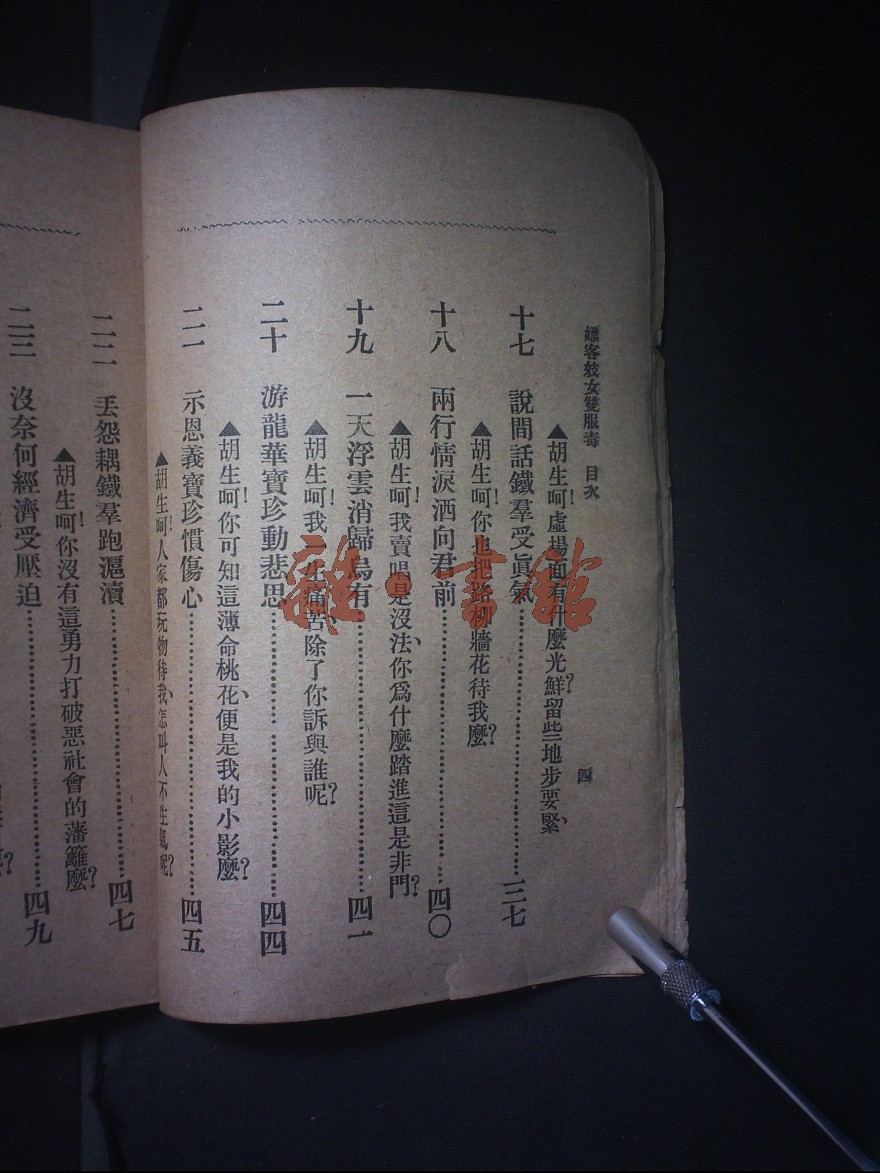 嫖客妓女雙服毒 目次 四
▲胡生呵!虛場面有什麼光鮮?留些地步要緊、
十七 說閒話鐵羣受眞氣……三七
▲胡生呵!你也把路柳牆花待我麼?
十八 兩行情淚洒向君前……四〇
▲胡生呵!我賣唱是沒法、你爲什麼踏進這是非門?
十九 一天浮雲消歸烏有……四一
▲胡生呵!我一生痛苦、除了你訴與誰呢?
二十 游龍華寶珍動悲思……四四
▲胡生呵!你可知這薄命桃花、便是我的小影麼?
二一 示恩義寶珍慣傷心……四五
▲胡生呵!人家都玩物待我、怎叫人不生氣呢?
二二 丟怨耦鐵羣跑滬瀆……四七
▲胡生呵!你沒有這勇力打破惡社會的藩籬麼?
二三 沒奈何經濟受壓迫……四九
雜·書館